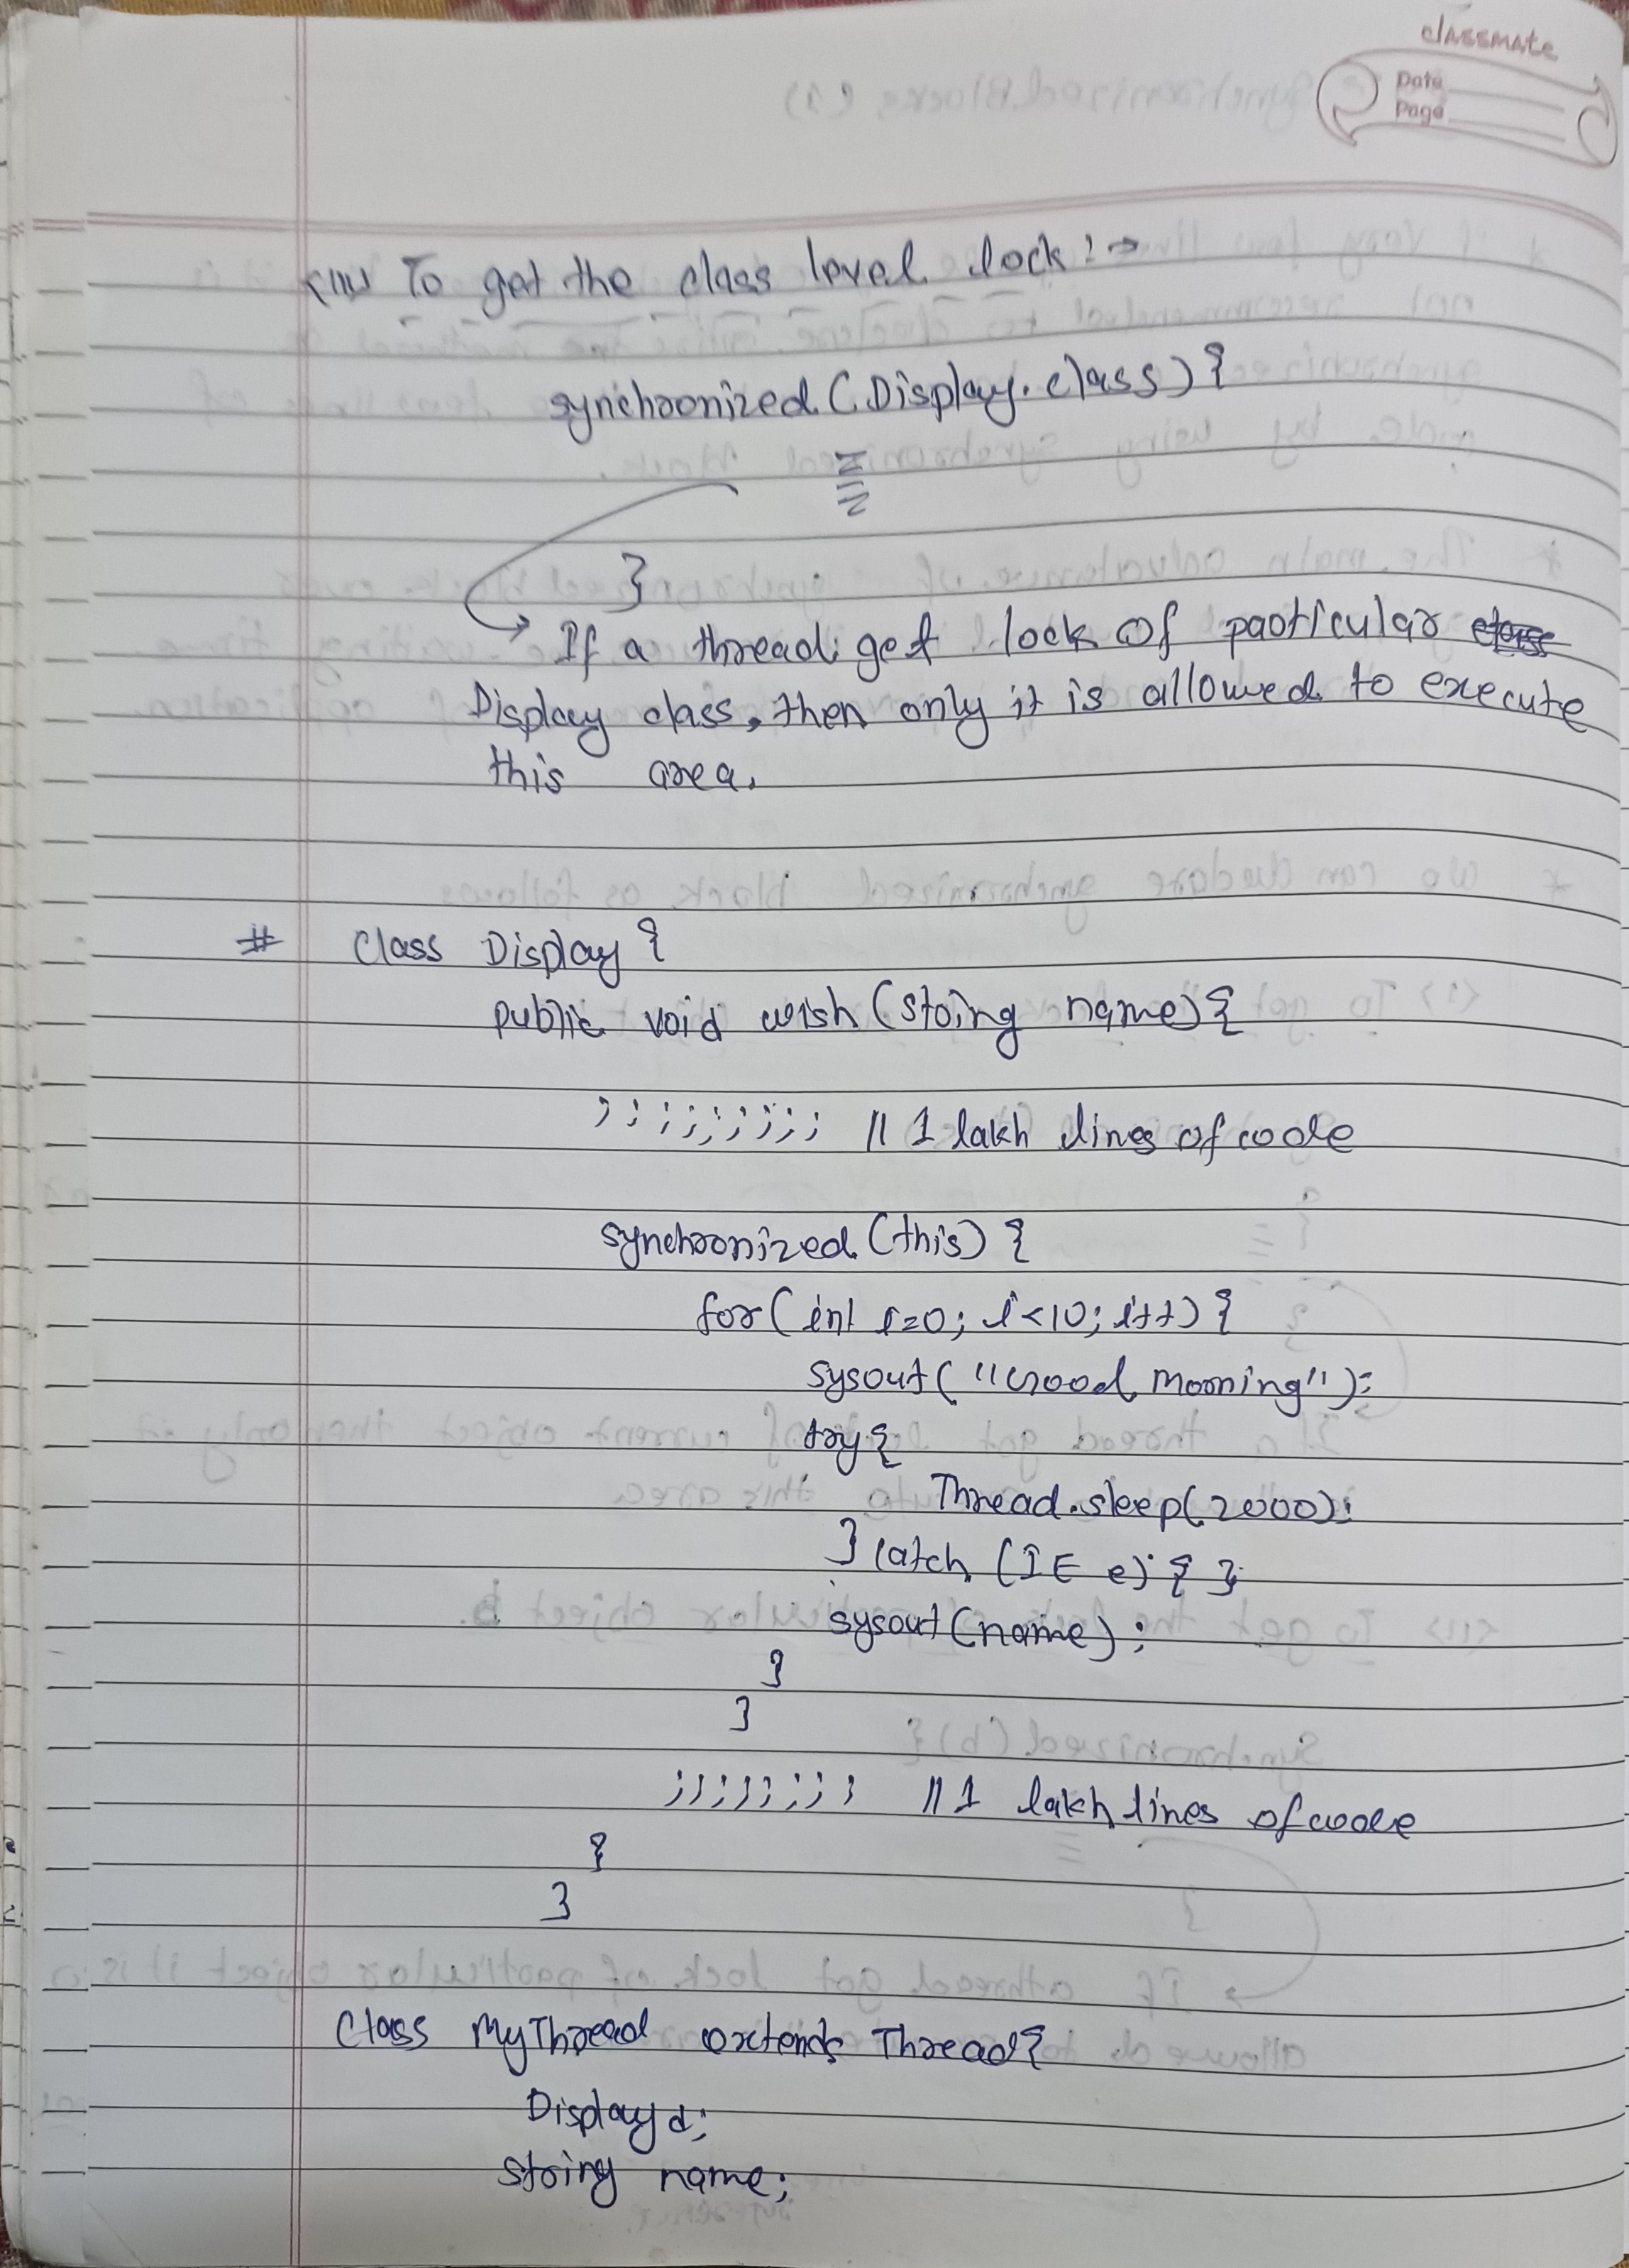 classmate
Date
Page
<iii> To get the class level lock :→
synchronized (Display.class) {
}
→ If a thread get lock of particular
Display class, then only it is allowed to execute
this area.
# Class Display {
public void wish (String name) {
; ; ; ; ; ; ; ; ; // 1 lakh lines of code
synchronized (this) {
for (int i=0; i<10; i++) {
sysout ("Good Morning");
try {
Thread.sleep(2000);
} catch (IE e) { }
sysout (name) ;
}
}
; ; ; ; ; ; ; ; // 1 lakh lines of code
}
}
Class MyThread extends Thread {
Display d;
String name;